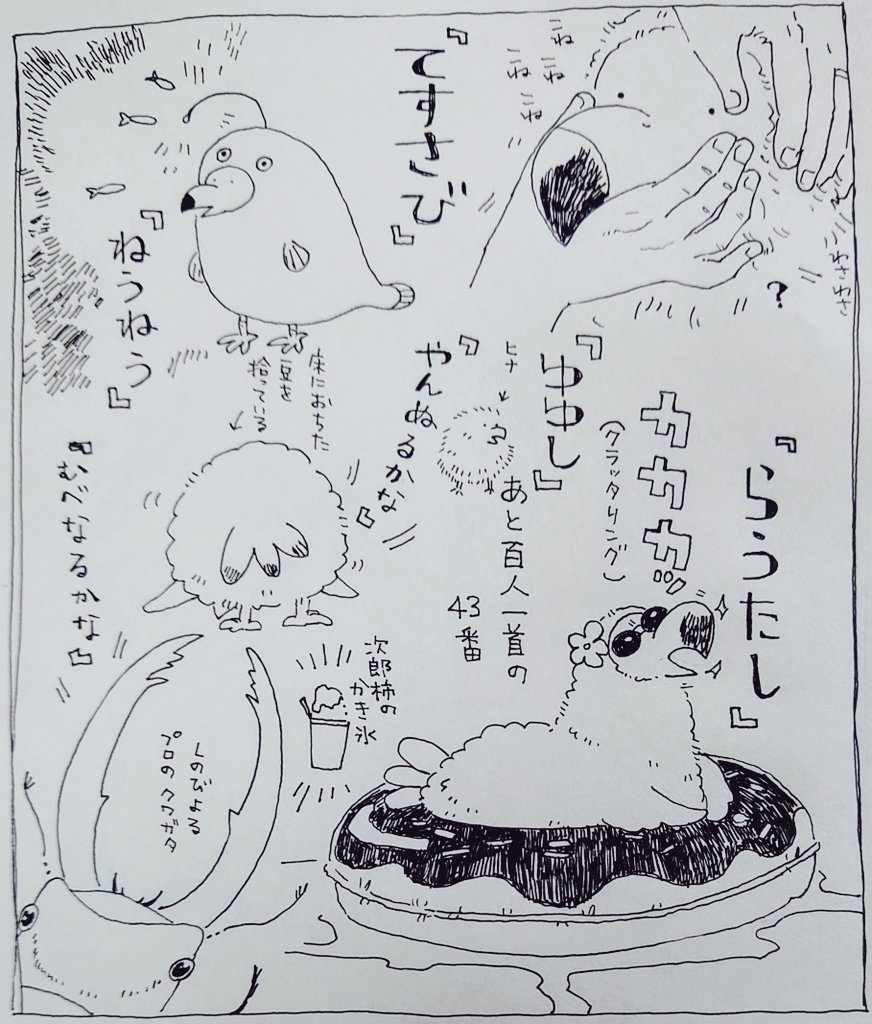 こね
こね
こね
こね
『てすさび』
わさわさ
?
『ねうねう』
『らうたし』
カカカカッ
(クラッタリング)
『ゆゆし』
ヒナ
『やんぬるかな』
床におちた
豆を
拾っている
あと百人一首の
43番
『むべなるかな』
次郎柿の
かき氷
しのびよる
プロのクワガタ